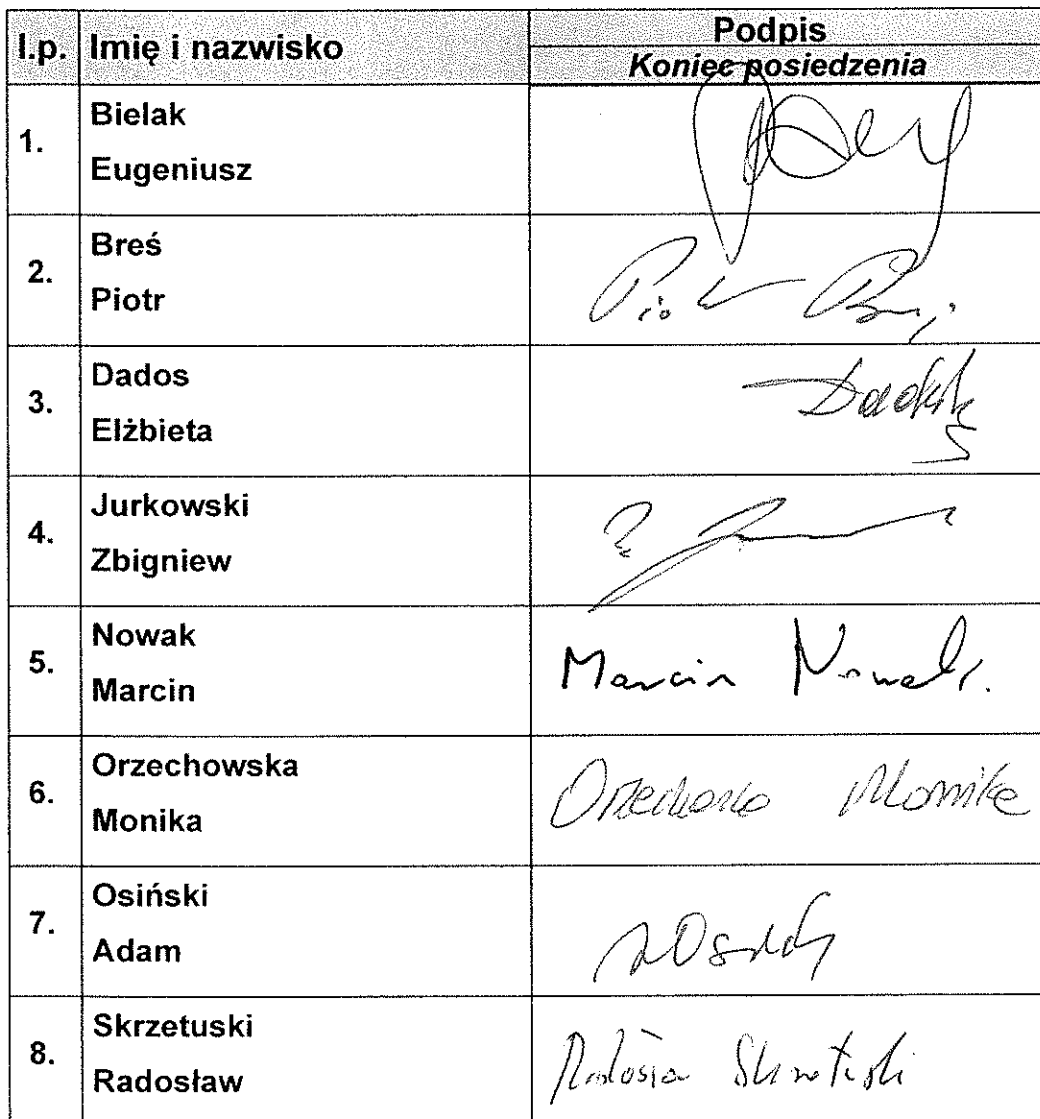 l.p. Imię i nazwisko Podpis
Koniec posiedzenia
1. Bielak
Eugeniusz
2. Breś
Piotr
Piotr
3. Dados
Elżbieta
4. Jurkowski
Zbigniew
5. Nowak
Marcin
Marcin Nowak
6. Orzechowska
Monika
Monika
7. Osiński
Adam
8. Skrzetuski
Radosław
Skrzetuski